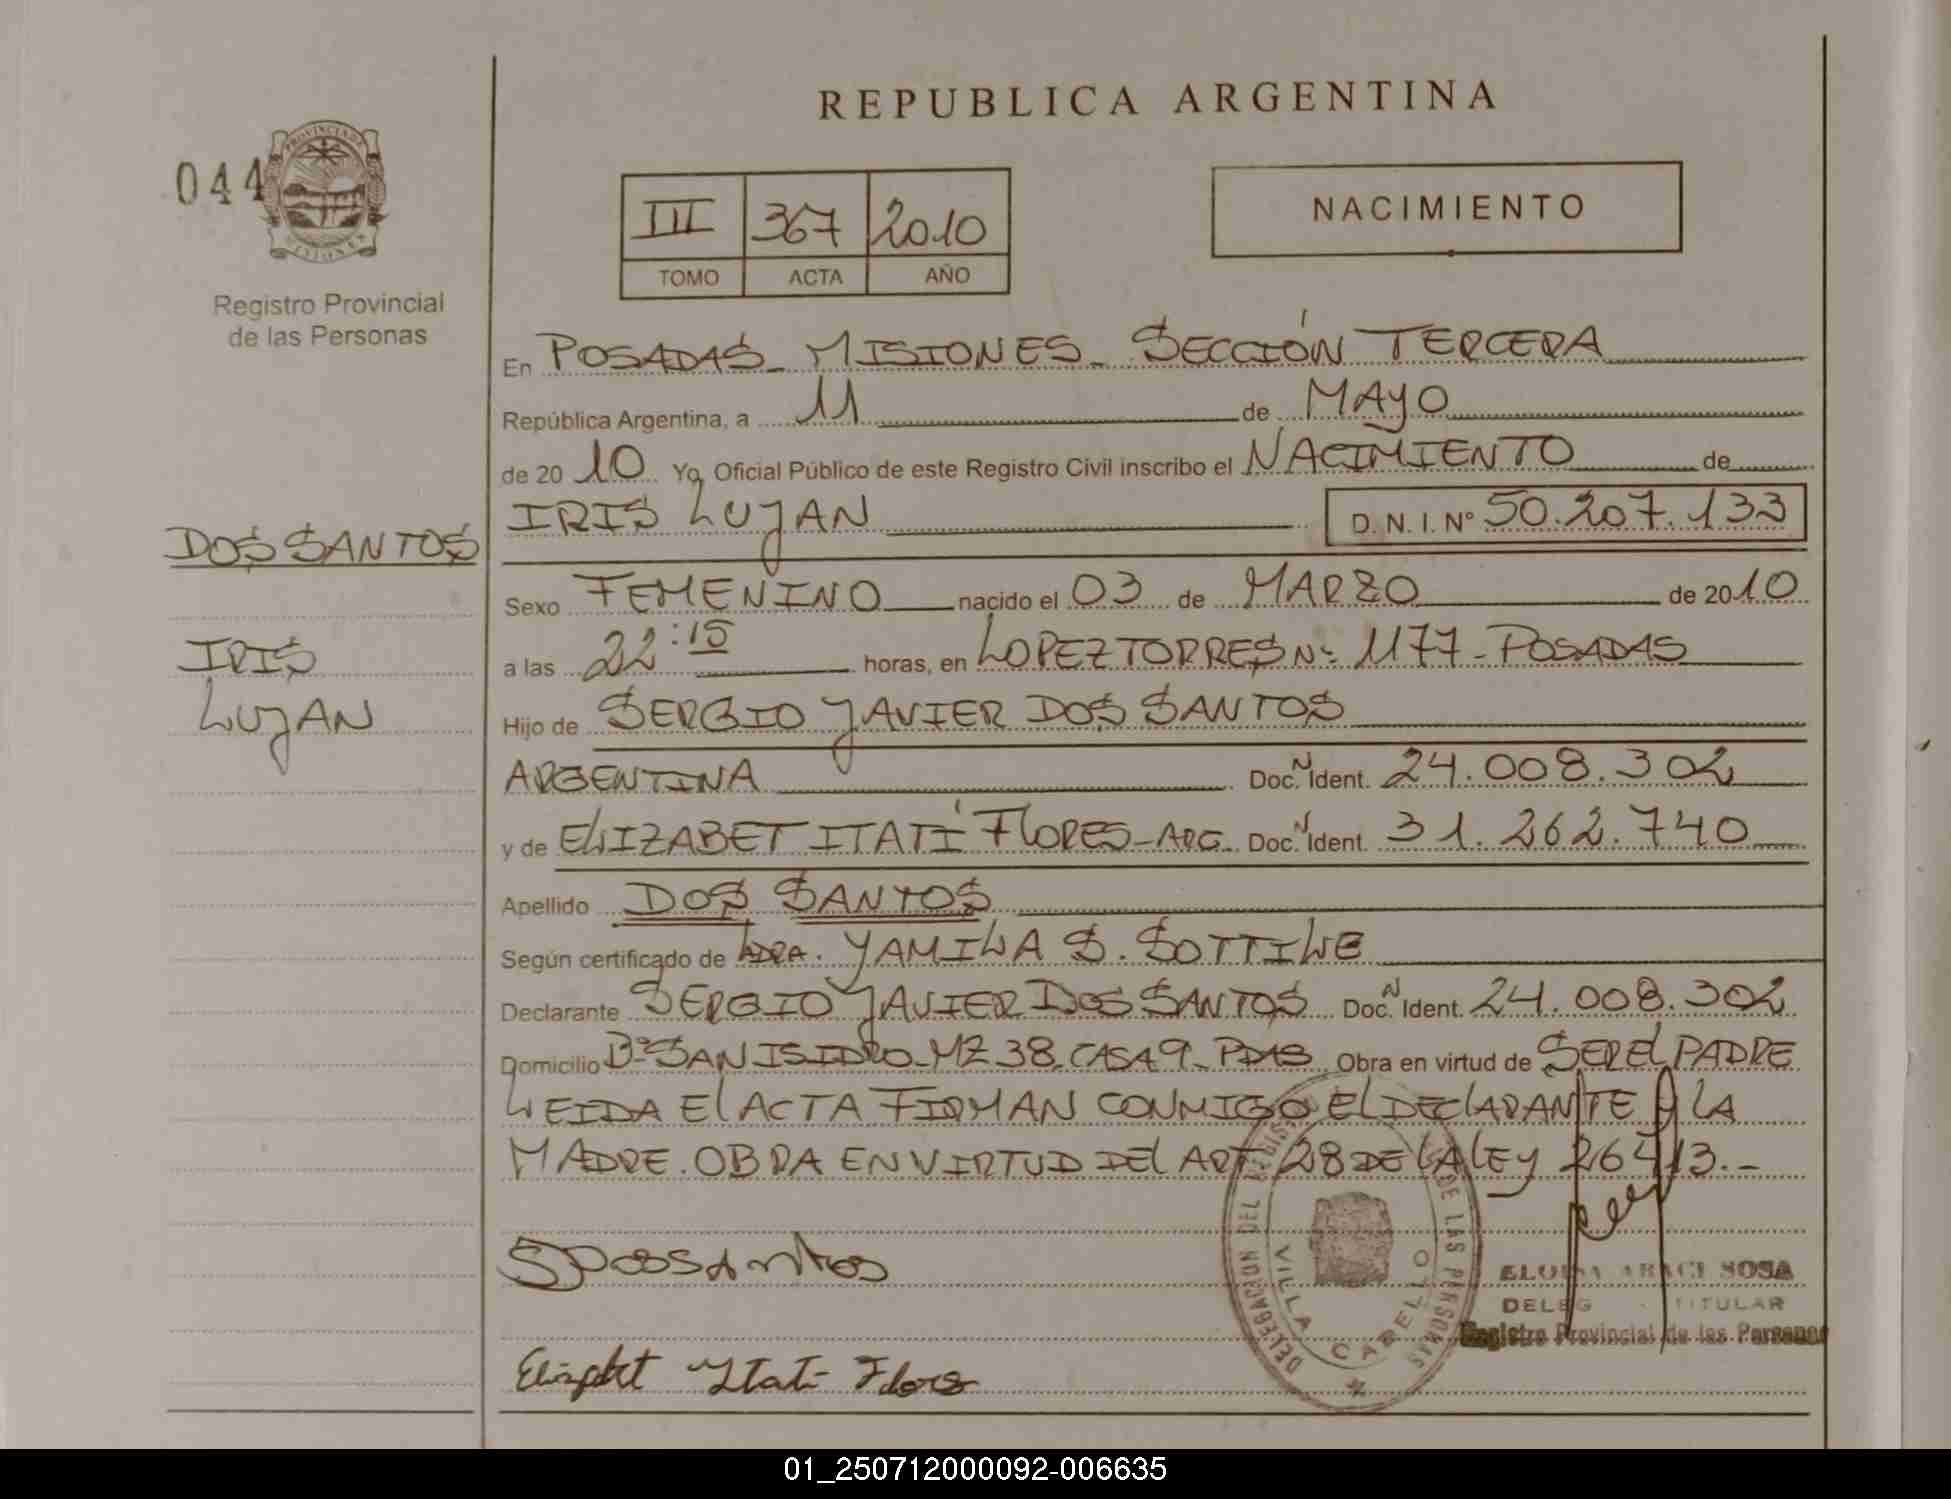 REPUBLICA ARGENTINA
044
PROVINCIA DE
MISIONES
Registro Provincial
de las Personas
III 367 2010
TOMO ACTA AÑO
NACIMIENTO
En POSADAS - MISIONES - SECCIÓN TERCERA
República Argentina, a 11 de MAYO
de 2010 Yo, Oficial Público de este Registro Civil inscribo el NACIMIENTO de
IRIS LUJAN D. N. I. Nº 50.207.133
DOS SANTOS
Sexo FEMENINO nacido el 03 de MARZO de 2010
IRIS
a las 22:15 horas, en LOPEZ TORRES Nº 1177 - POSADAS
LUJAN
Hijo de SERGIO JAVIER DOS SANTOS
ARGENTINA Doc. N Ident. 24.008.302
y de ELIZABET ITATÍ FLORES - ARG. Doc. N Ident. 31.262.740
Apellido DOS SANTOS
Según certificado de LDRA. YAMILA S. SOTTILE
Declarante SERGIO JAVIER DOS SANTOS Doc. N Ident. 24.008.302
Domicilio Bº SAN ISIDRO - MZ 38 - CASA 9 - PDAS Obra en virtud de SER EL PADRE
LEIDA El ACTA FIRMAN CONMIGO El DEClARANTE y LA
MADRE. OBRA EN VIRTUD DEl ART 28 DE LA LEY 26413.-
SDosSantos
DELEGACION DEL REGISTRO DE LAS PERSONAS
VILLA CABELLO
ELOISA ARACI SOSA
DELEG TITULAR
Registro Provincial de las Personas
Elizabet Itati Flores
01_250712000092-006635